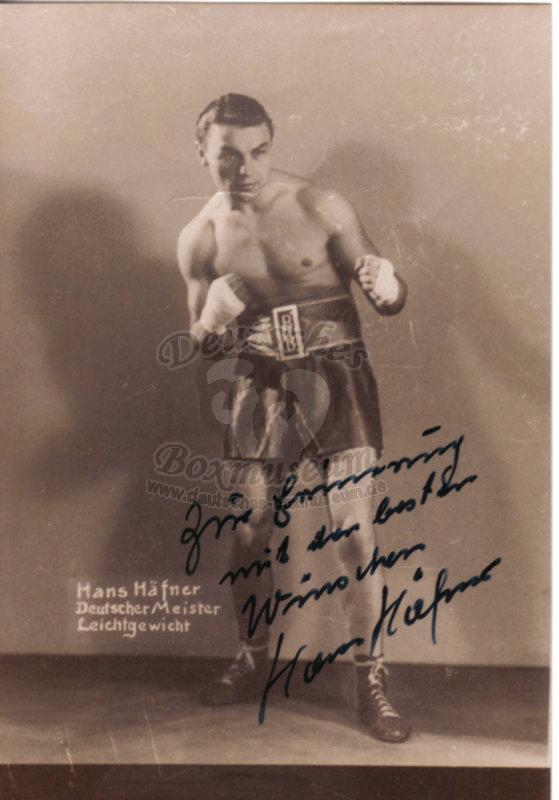 Deutsches
Boxmuseum
www.deutsches-boxmuseum.de
Zur Erinnerung
mit den besten
Wünschen
Hans Häfner
Hans Häfner
Deutscher Meister
Leichtgewicht